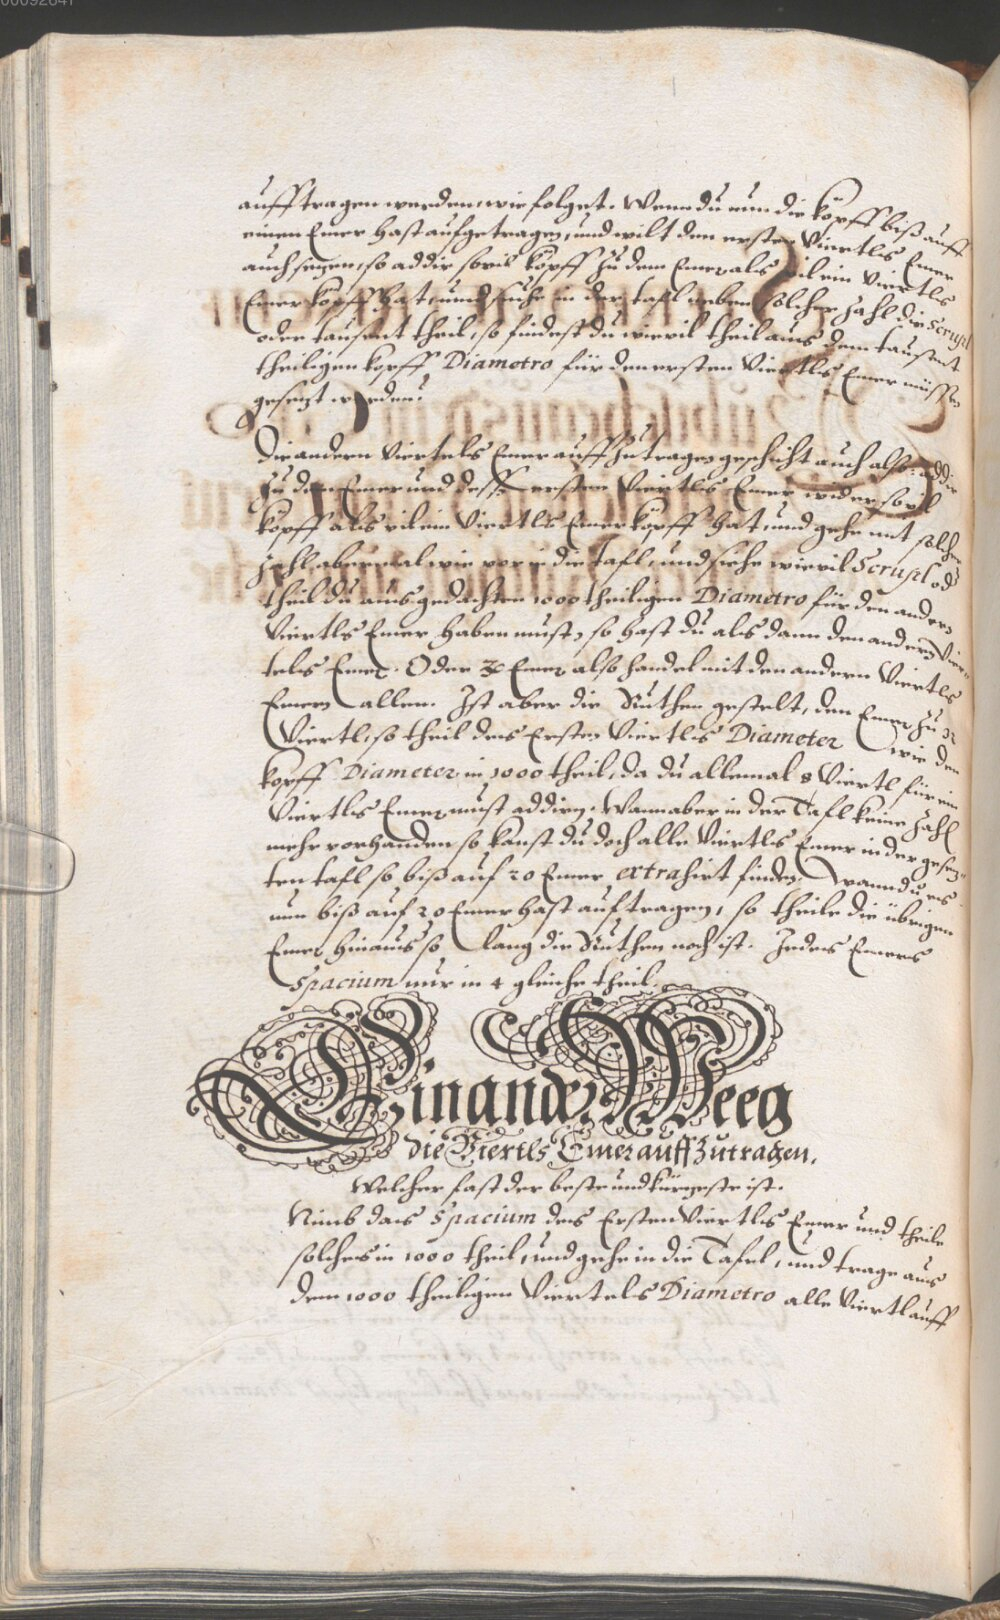 00092841
aufftragen werden, wie folget. Wenn du nun die köpff biß auff
einen Emer hast aufgetragen, und wilt den ersten Viertls Emer
auch sezen, so addir sovil köpff zu dem Emer als vil ein Viertls
Emer köpff hat, und suche in der tafl neben solcher zahl die Scrupl
oder tausent theil, so findest du wievil theil aus dem tausent
theiligen kopff Diametro für den ersten Viertls Emer müssen
gesezt werden.
Die andern Viertels Emer auff zutragen geschicht auch also: addir
zu dem Emer und dess ersten Viertls Emer wider sovil
köpff als vil ein Viertls Emer köpff hat, und gehe mit solcher
zahl abermal wie vor in die tafl, und siehe wievil Scrupl od
theil du aus gedachten 1000 theiligen Diametro für den andern
Viertls Emer haben must, so hast du als dann den andern Vier-
tels Emer. Oder Emer also handel mit den andern Viertls
Emern allen. Ist aber die Ruthen gestelt, den Emer zu 32
Viertl, so theil des Ersten Viertls Diameter wie den
kopff Diameter in 1000 theil, da du allemal 8 Viertl für ein
Viertls Emer must addirn. Wann aber in der Tafl keine zahl
mehr vorhanden so kanst du doch alle Viertls Emer in der gesez-
ten tafl so biß auf 20 Emer extrahirt finden. Wann du es
nun biß auf 20 Emer hast auftragen, so theile die übrigen
Emer hinaus so lang die Ruthen noch ist. Jedes Emers
Spacium nur in 4 gleiche theil.
Ein ander Weeg
die Viertls Emer auff zutragen.
Welcher fast der beste und kürzeste ist.
Nimb das Spacium des Ersten Viertls Emer und theile
solches in 1000 theil, und gehe in die Tafel, und trage aus
dem 1000 theiligen Viertels Diametro alle Viertl auff